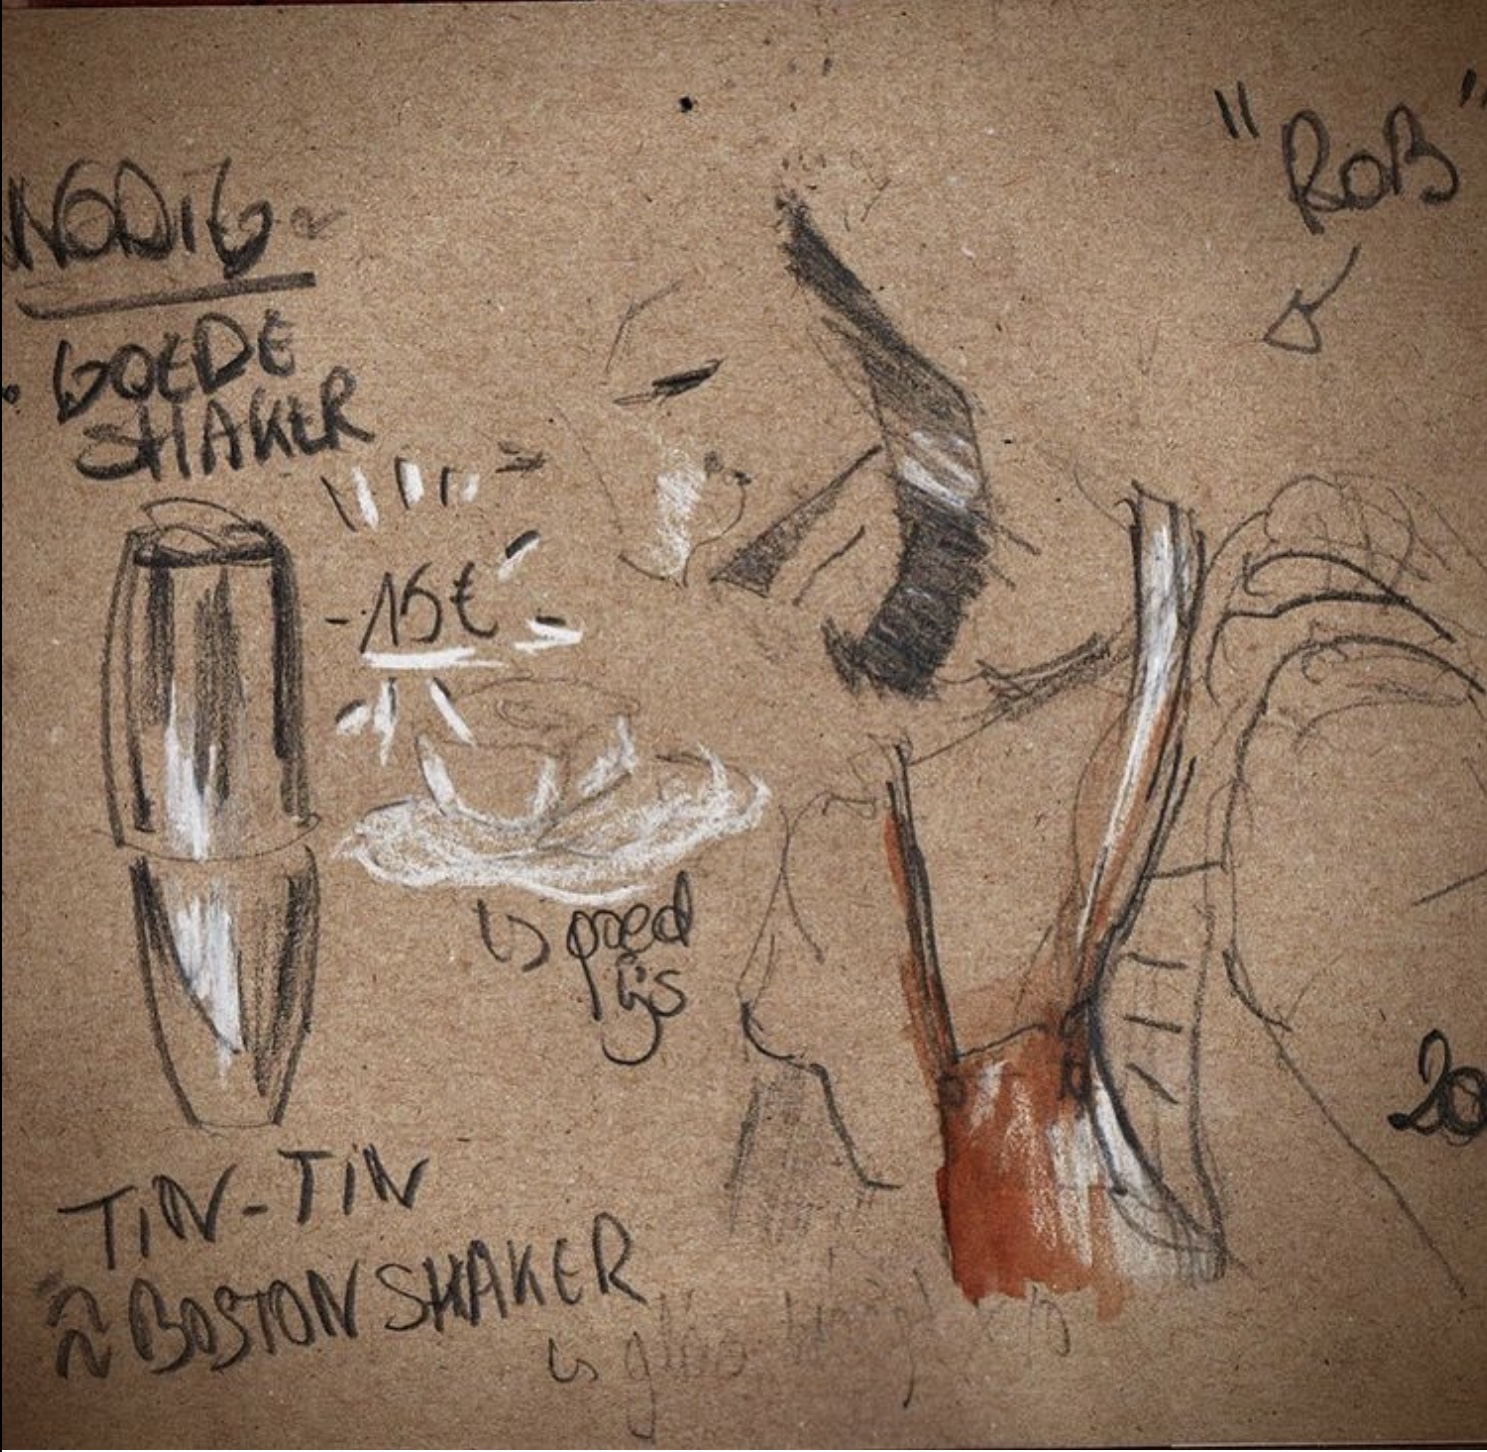 NODIG
• GOEDE
SHAKER
-15€
↳ goed
ijs
TIN-TIN
≈ BOSTON SHAKER
↳ glas
"ROB"
20